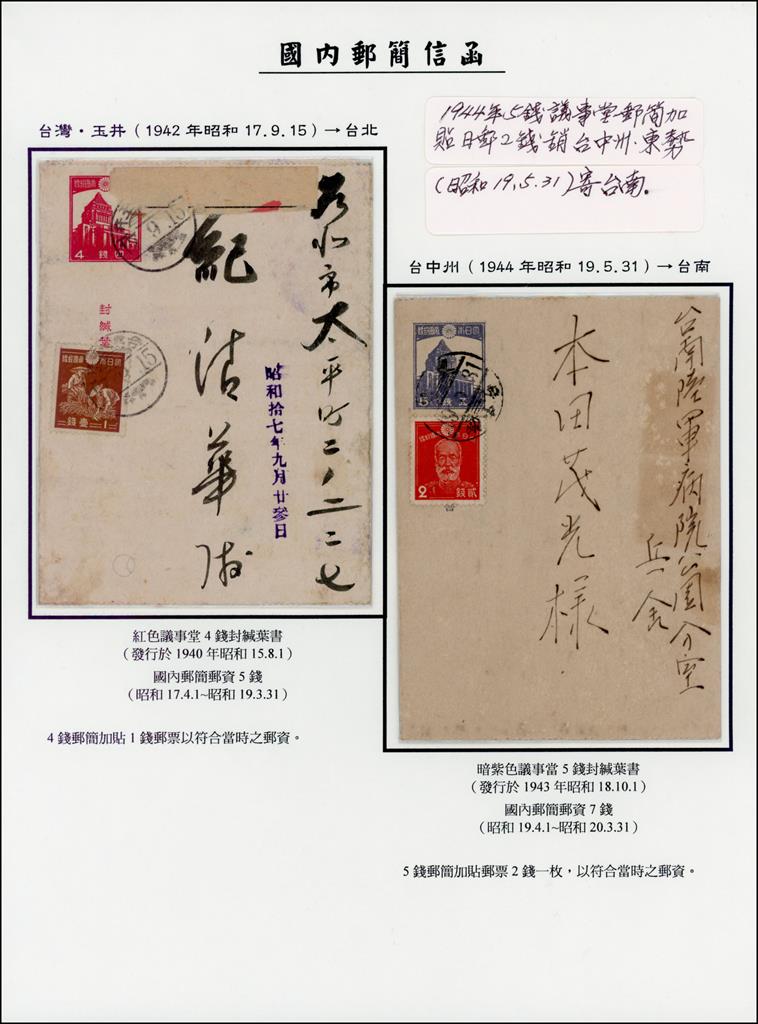 國內郵簡信函
台灣・玉井（1942 年昭和 17.9.15）→台北
1944年5錢議事堂郵簡加
貼日郵2錢銷台中州.東勢
(昭和19.5.31)寄台南.
台中州（1944 年昭和 19.5.31）→台南
4
錢
四
封緘葉
壹
錢
1
台北市太平町二ノ二二七
紀
昭和拾七年九月廿參日
5
2
錢
貳
台南陸軍病院公園分室
兵一舎
本田茂光様
紅色議事堂 4 錢封緘葉書
（發行於 1940 年昭和 15.8.1）
國內郵簡郵資 5 錢
（昭和 17.4.1~昭和 19.3.31）
4 錢郵簡加貼 1 錢郵票以符合當時之郵資。
暗紫色議事當 5 錢封緘葉書
（發行於 1943 年昭和 18.10.1）
國內郵簡郵資 7 錢
（昭和 19.4.1~昭和 20.3.31）
5 錢郵簡加貼郵票 2 錢一枚，以符合當時之郵資。